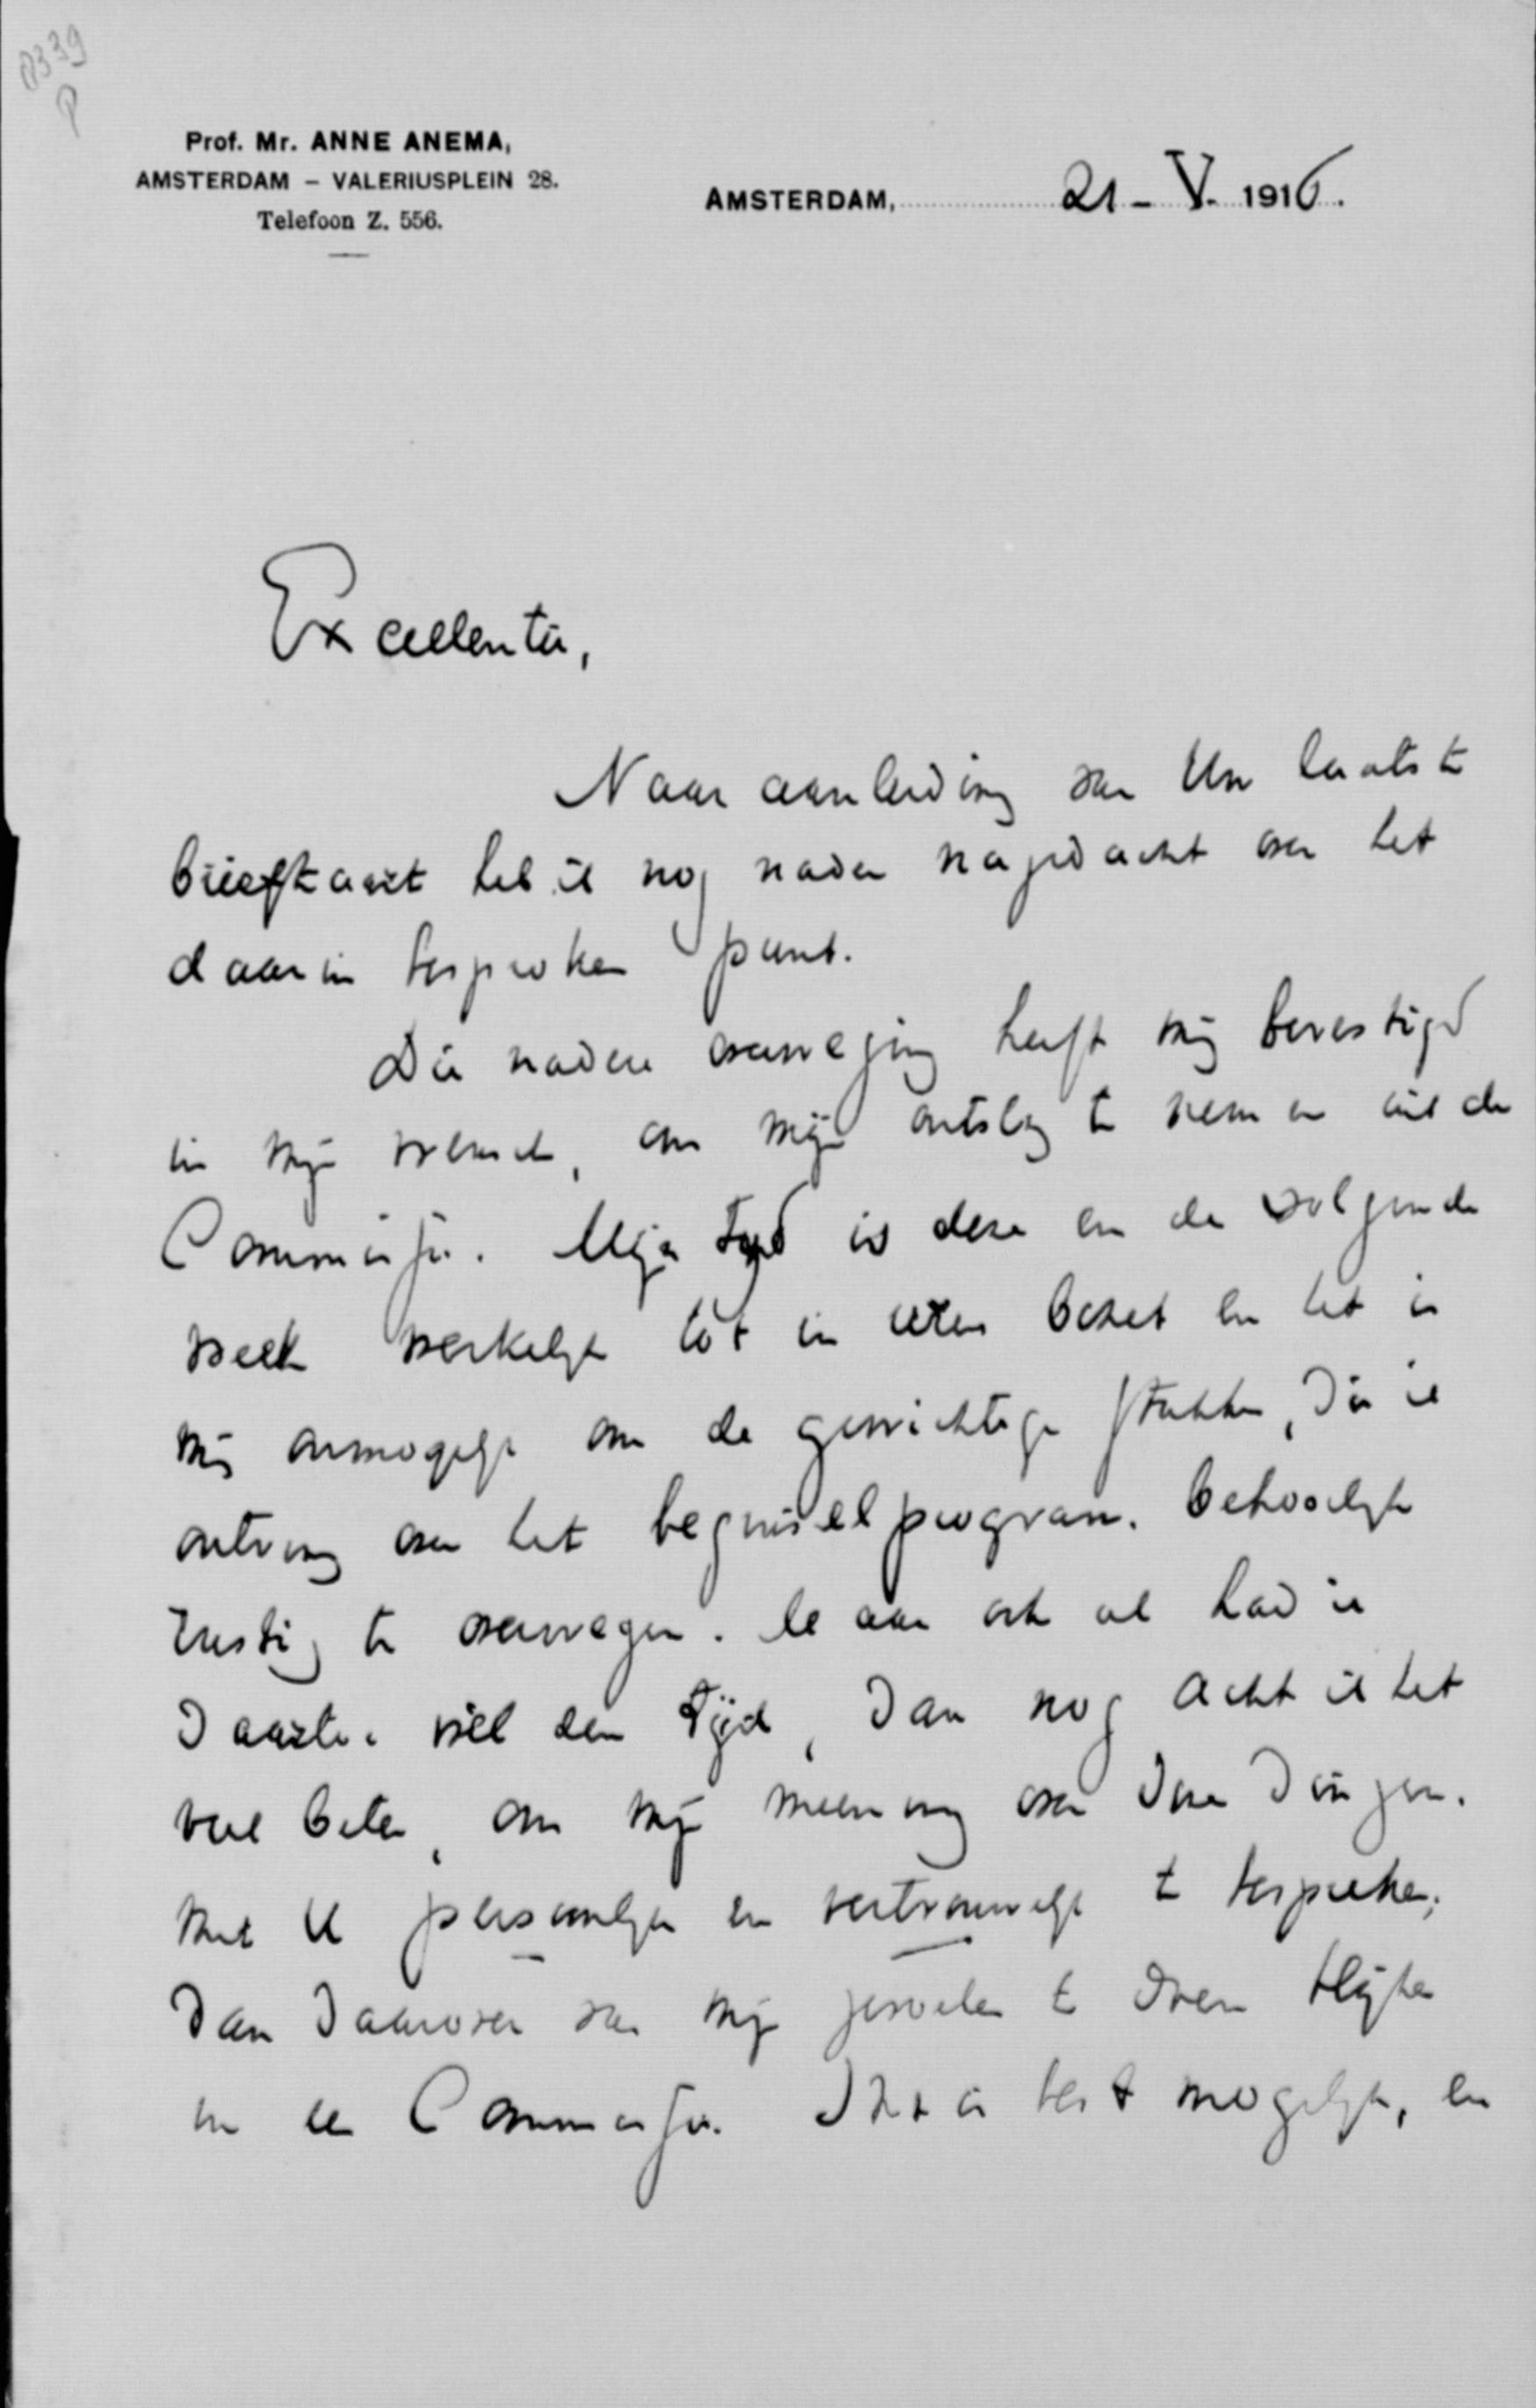 8339
P
Prof. Mr. ANNE ANEMA,
AMSTERDAM – VALERIUSPLEIN 28.
Telefoon Z. 556.
AMSTERDAM, 21 - V. 1916.
Excellentie,
Naar aanleiding van Uw laatste
briefkaart heb ik nog nader nagedacht over het
daarin besproken punt.
Die nadere overweging heeft mij bevestigd
in mijn wensch, om mijn ontslag te nemen uit de
Commissie. Mijn tijd is deze en de volgende
week werkelijk tot in uren bezet en het is
mij onmogelijk om de gewichtige stukken, die ik
ontving over het beginselprogram. behoorlijk
rustig te overwegen. Maar ook al had ik
daartoe wel den tijd, dan nog acht ik het
veel beter, om mijn meening over deze dingen.
met U persoonlijk en vertrouwelijk te bespreken,
dan daarover van mijn gevoelen te doen blijken
in de Commissie. Het is best mogelijk, en